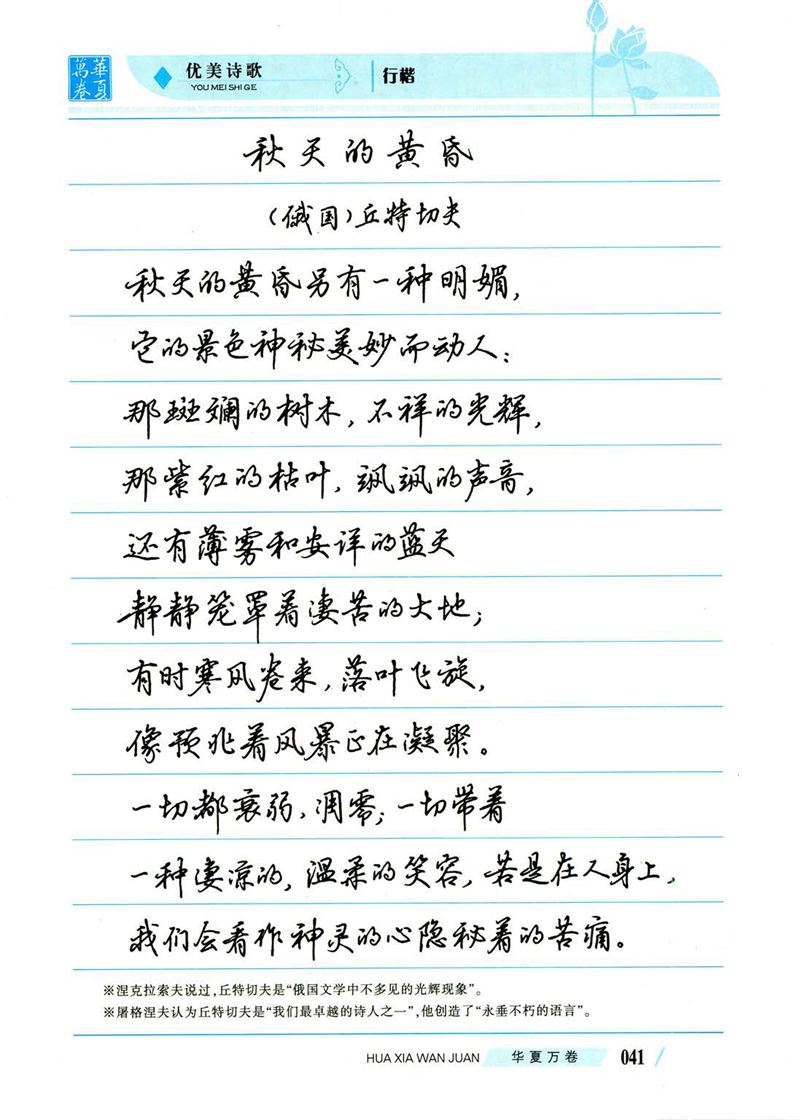 華夏萬卷
优美诗歌 行楷
YOU MEI SHI GE
秋天的黄昏
（俄国）丘特切夫
秋天的黄昏另有一种明媚，
它的景色神秘美妙而动人：
那斑斓的树木，不祥的光辉，
那紫红的枯叶，飒飒的声音，
还有薄雾和安详的蓝天
静静笼罩着凄苦的大地；
有时寒风卷来，落叶飞旋，
像预兆着风暴正在凝聚。
一切都衰弱，凋零；一切带着
一种凄凉的，温柔的笑容，若是在人身上，
我们会看作神灵的心隐秘着的苦痛。
※涅克拉索夫说过，丘特切夫是“俄国文学中不多见的光辉现象”。
※屠格涅夫认为丘特切夫是“我们最卓越的诗人之一”，他创造了“永垂不朽的语言”。
HUA XIA WAN JUAN 华夏万卷 041